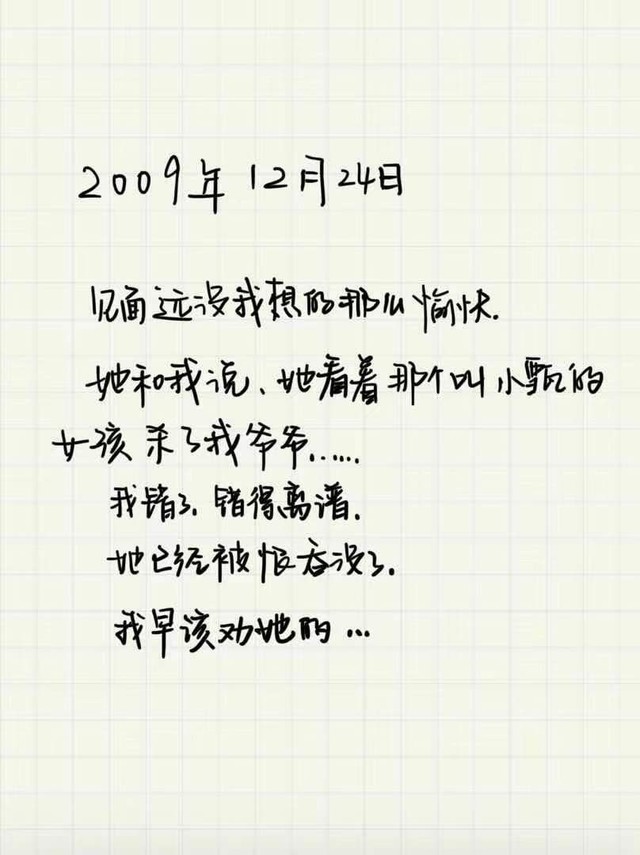 2009年12月24日
见面远没我想的那么愉快.
她和我说、她看着那个叫小甄的
女孩杀了我爷爷......
我错了.错得离谱.
她已经被恨吞没了.
我早该劝她的...